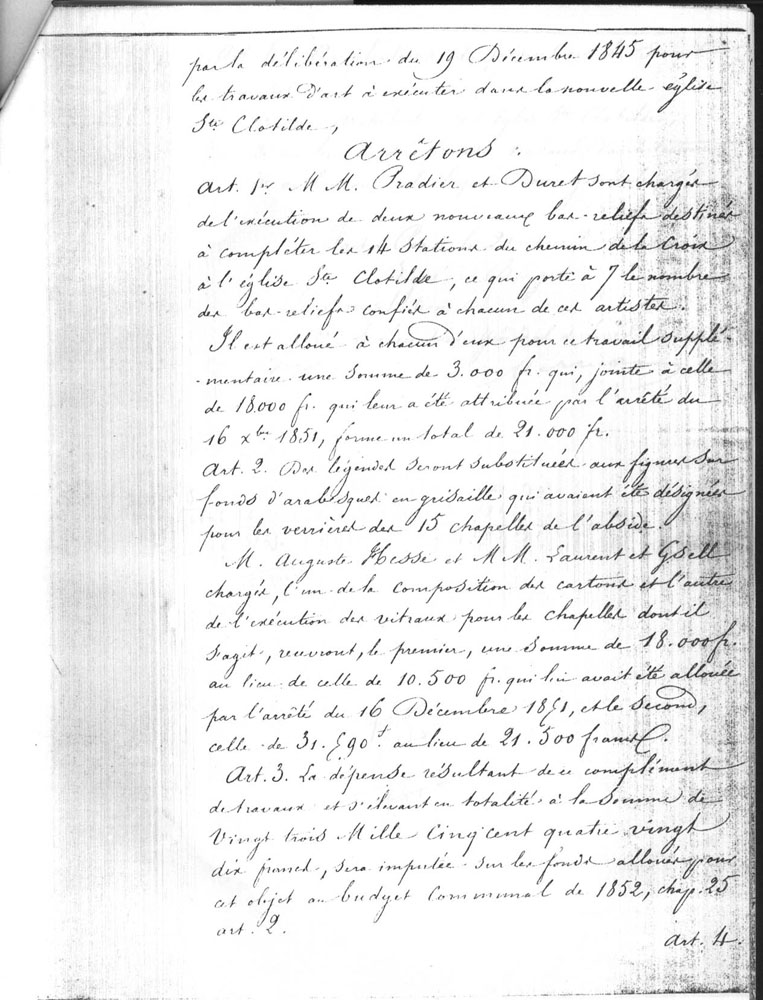 par la délibération du 19 Décembre 1845 pour
les travaux d'art à exécuter dans la nouvelle église
Ste Clotilde,
Arrêtons :
Art. 1er M M. Pradier et Duret sont chargés
de l'exécution de deux nouveaux bas-reliefs destinés
à compléter les 14 Stations du chemin de la Croix
à l'église Ste Clotilde, ce qui porte à 7 le nombre
des bas-reliefs confiés à chacun de ces artistes.
Il est alloué à chacun d'eux pour ce travail supplé-
-mentaire une somme de 3.000 fr. qui, jointe à celle
de 18.000 fr. qui leur a été attribuée par l'arrêté du
16 xbre 1851, forme un total de 21.000 fr.
Art. 2. Des légendes seront substituées aux figures sur
fonds d'arabesques en grisaille qui avaient été désignées
pour les verrières des 15 chapelles de l'abside.
M. Auguste Hesse et M M. Laurent et Gsell
chargés, l'un de la composition des cartons et l'autre
de l'exécution des vitraux pour les chapelles dont il
s'agit, recevront, le premier, une somme de 18.000 fr.
au lieu de celle de 10.500 fr. qui lui avait été allouée
par l'arrêté du 16 Décembre 1851, et le second,
celle de 31.590 f. au lieu de 21.500 francs.
Art. 3. La dépense résultant de ce complément
de travaux et s'élevant en totalité à la somme de
Vingt trois Mille Cinq cent quatre vingt
dix francs, sera imputée sur les fonds alloués pour
cet objet au budget Communal de 1852, chap. 25
art. 2.
Art. 4.